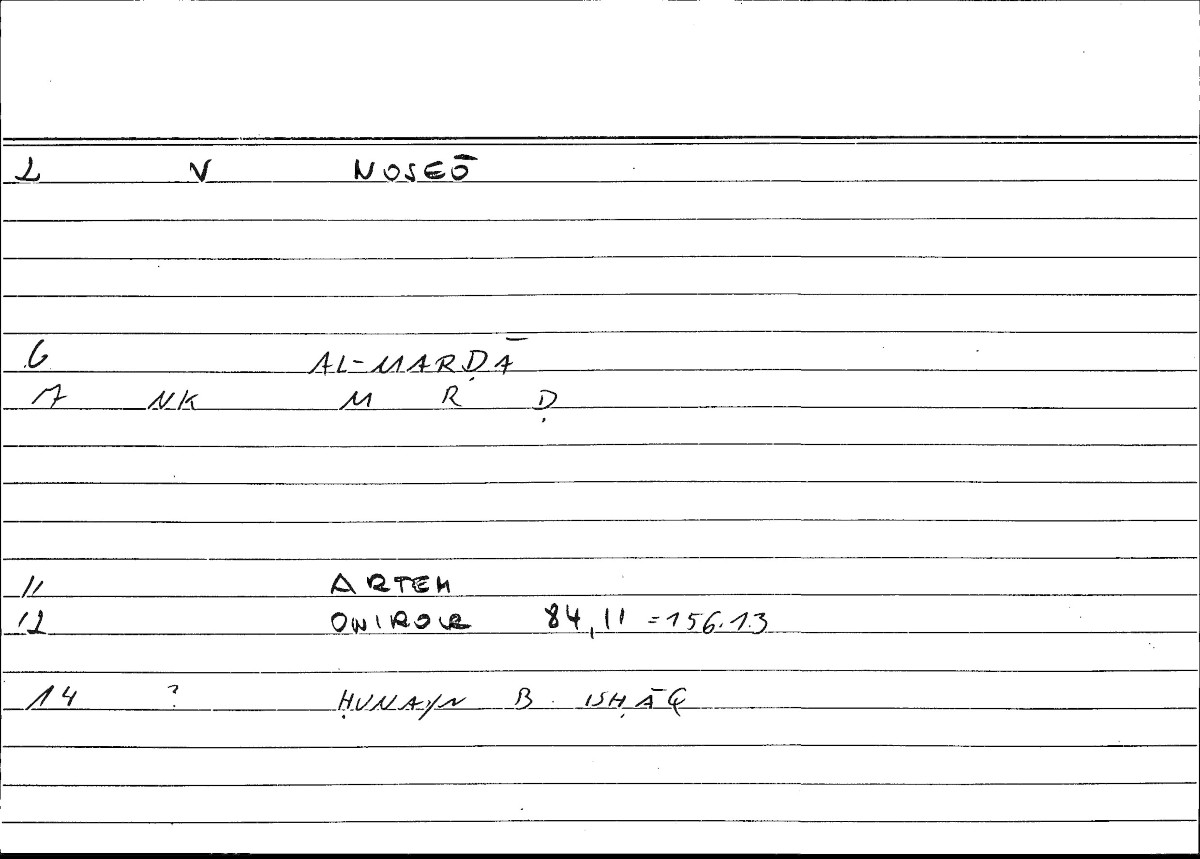 2 V NOSEŌ
6 AL-MARḌĀ
7 NK M R Ḍ
11 ARTEM
12 ONIROCR 84,11 =156.13
14 ? ḤUNAYN B. ISḤĀQ